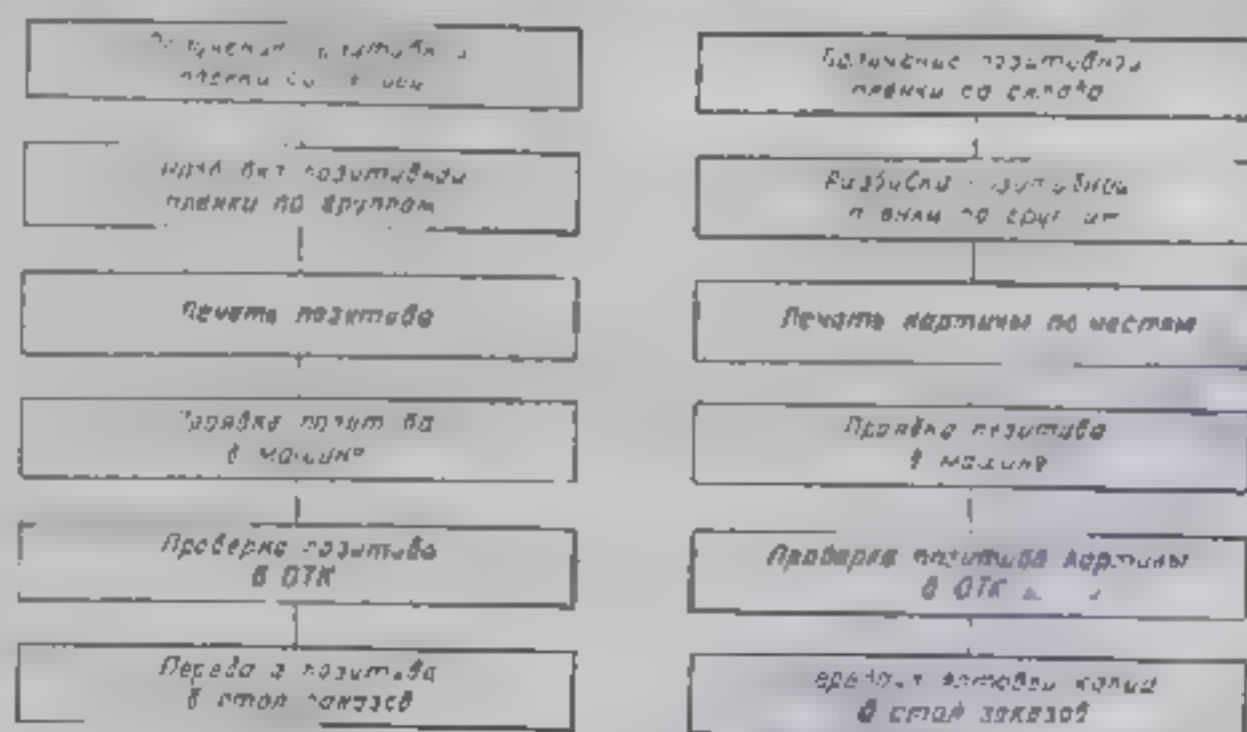 Получение позитивной
пленки со
позитивной
пленки по группам
Печать позитива
Зарядка позитива
в машине
Проверка позитива
в ОТК
Передача позитива
в стол заказов
Получение позитивной
пленки со склада
Разбивка позитивной
пленки по группам
Печать картины по частям
Зарядка позитива
в машине
Проверка позитива картины
в ОТК
готовой копии
в стол заказов